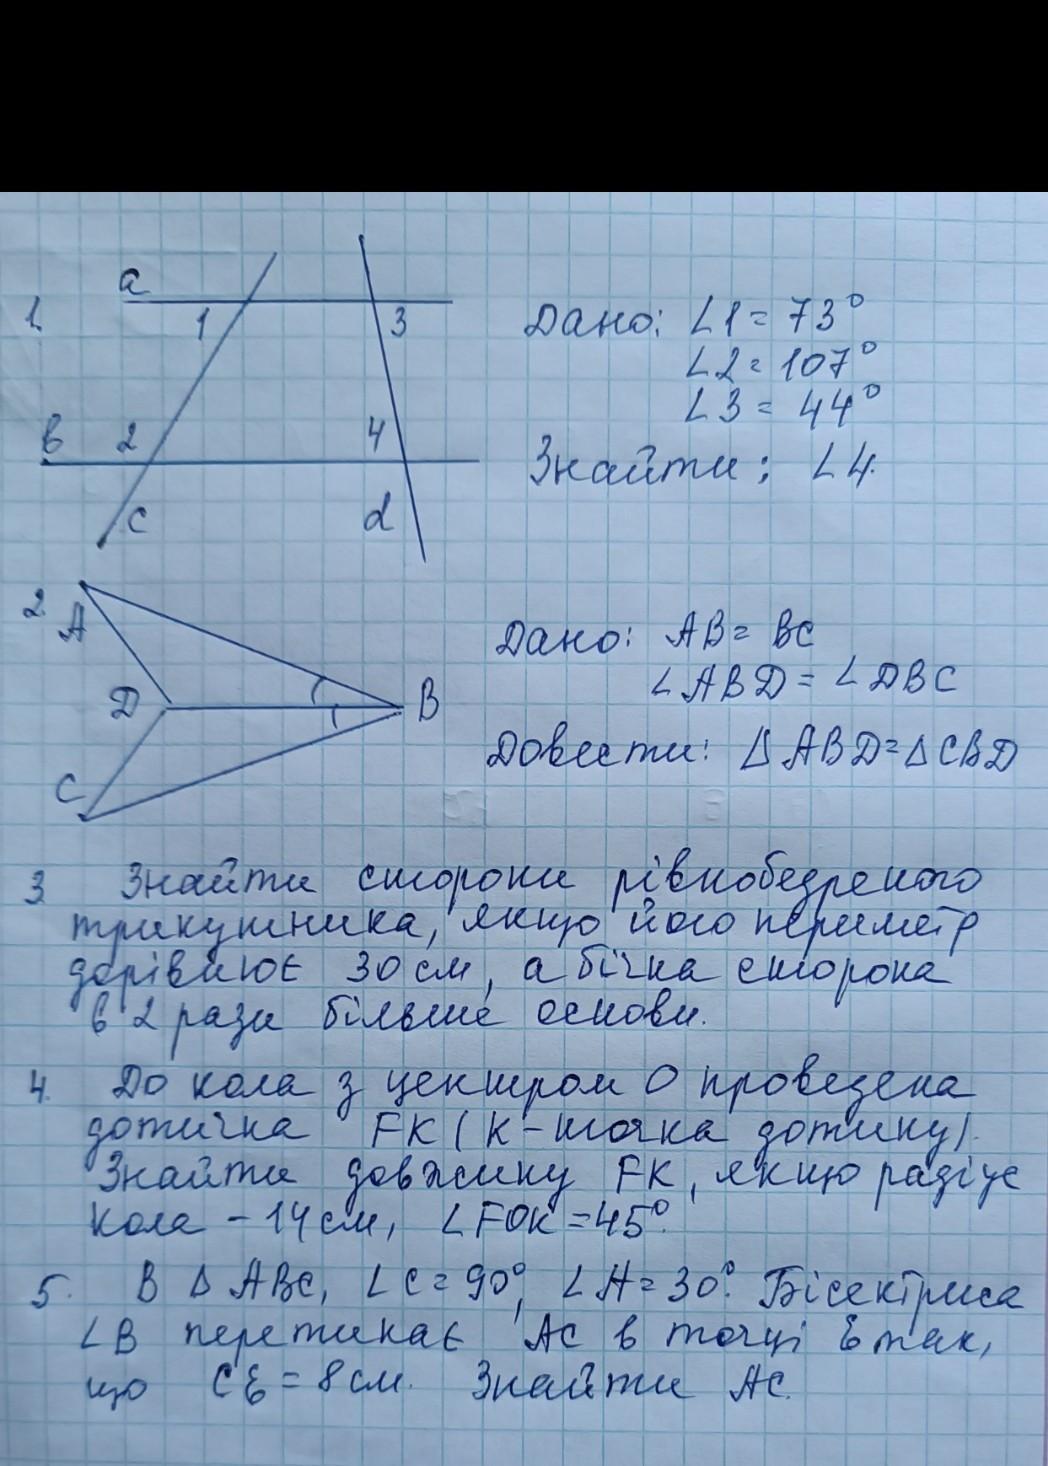 1.
a
1
3
Дано: ∠1 = 73°
∠2 = 107°
∠3 = 44°
в
2
4
Знайти: ∠4.
c
d
2.
A
D
B
C
Дано: AB = BC
∠ABD = ∠DBC
Довести: ΔABD = ΔCBD
3 Знайти сторони рівнобедреного
трикутника, якщо його периметр
дорівнює 30 см, а бічна сторона
в 2 рази більше основи.
4. До кола з центром O проведена
дотична FK (K - точка дотику).
Знайти довжину FK, якщо радіус
кола - 14 см, ∠FOK = 45°.
5. В Δ ABC, ∠C = 90°, ∠A = 30°. Бісектриса
∠B перетинає AC в точці E так,
що CE = 8 см. Знайти AC.